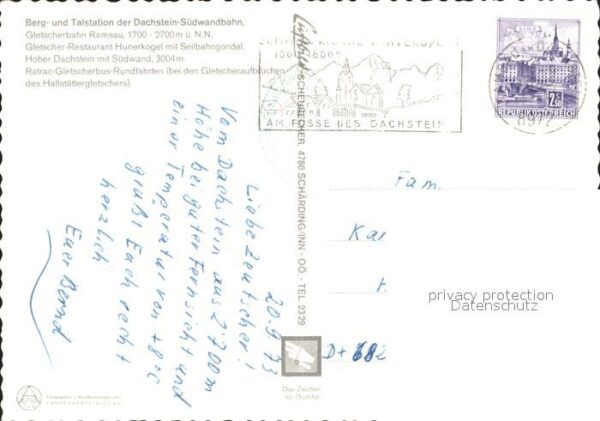 Berg- und Talstation der Dachstein-Südwandbahn.
Gletscherbahn Ramsau, 1700 - 2700m ü. N.N.
Gletscher-Restaurant Hunerkogel mit Seilbahngondel.
Hoher Dachstein mit Südwand, 3004m.
Ratrac-Gletscherbus-Rundfahrten (bei den Gletscheraufbrüchen
des Hallstättergletschers).
AM FUSSE DES DACHSTEIN
2.50
REPUBLIK ÖSTERREICH
8972
SCHEURECKER, 4780 SCHÄRDING/INN - OÖ. - TEL 2329
20.9.73
Liebe Zeutscher!
Vom Dachstein aus 2700m
Höhe bei guter Fernsicht und
einer Temperatur von +8°C
grüßt Euch recht
herzlich
Euer Bernd
Fam.
Kar
t.
D+682
privacy protection
Datenschutz
Das Zeichen
für Qualität